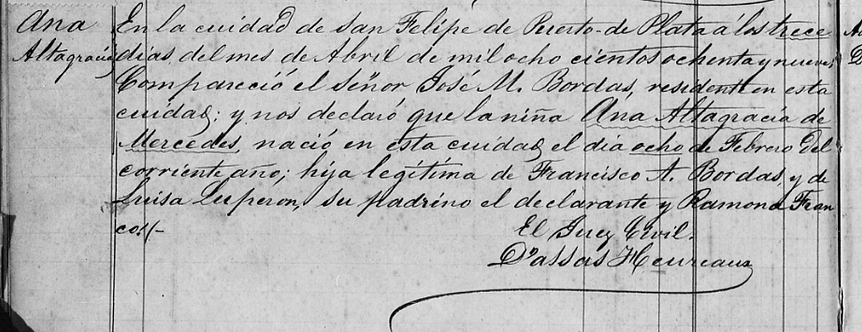 Ana
Altagracia
En la cuidad de San Felipe de Puerto-de Plata á los trece
dias, del mes de Abril de mil ocho cientos ochenta y nueve:
Compareció el señor José M. Bordas, residente en esta
cuidad; y nos declaró que la niña Ana Altagracia de
Mercedes, nació en esta cuidad, el dia ocho de Febrero del
corriente año; hija legitima de Francisco A. Bordas, y de
Luisa Luperon, su padrino el declarante y Ramona Fran
co:/-
El Juez Civil.
D'assas Heureaux